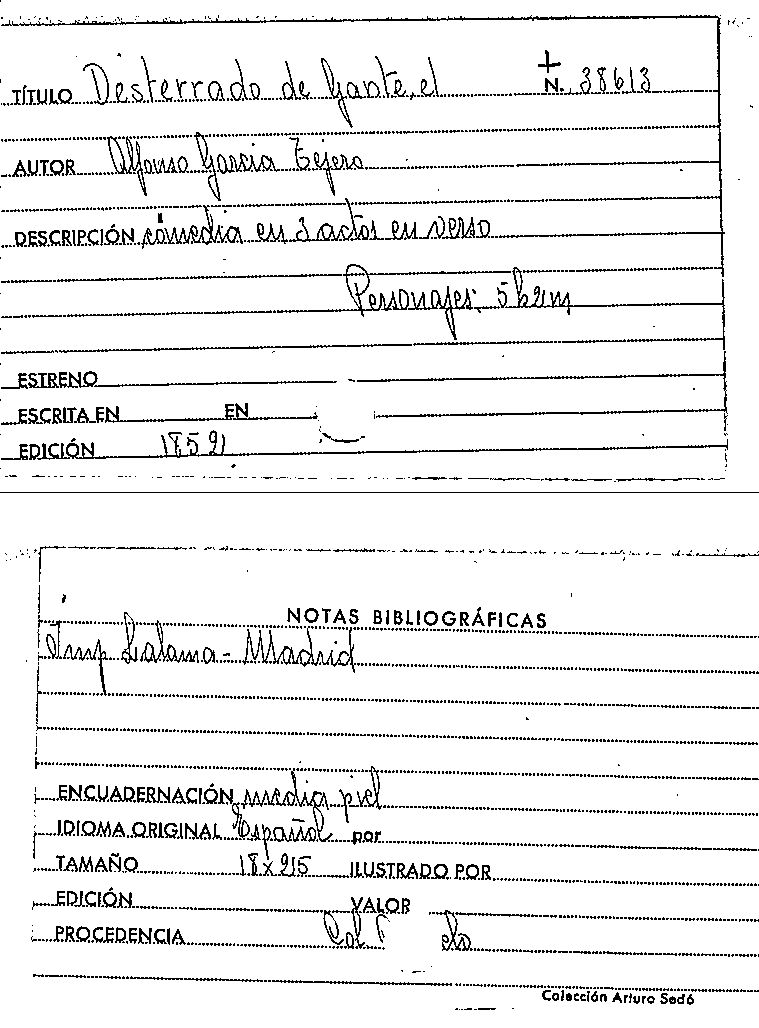 TÍTULO Desterrado de Gante, el + N. 38613
AUTOR Alfonso García Tejero
DESCRIPCIÓN comedia en 3 actos en verso
Personajes: 5h2m
ESTRENO
ESCRITA EN EN
EDICIÓN
NOTAS BIBLIOGRÁFICAS
Imp Lalama - Madrid
ENCUADERNACIÓN media piel
IDIOMA ORIGINAL Español por
TAMAÑO ILUSTRADO POR
EDICIÓN VALOR
PROCEDENCIA Col
Colección Arturo Sedó